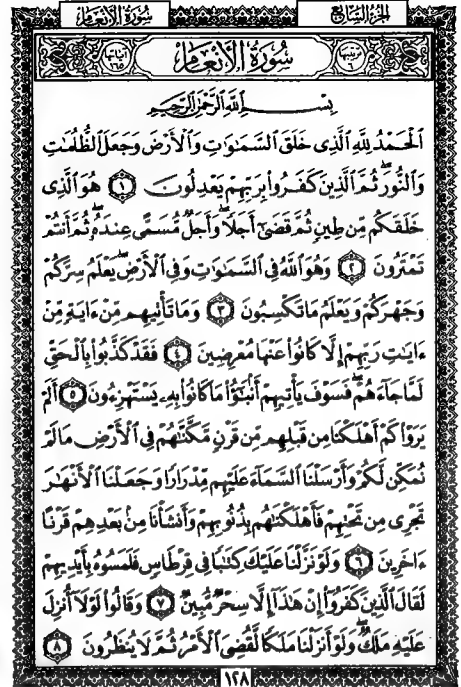 الجزء السابع
سورة الأنعام
ترتيبها ٦
سُورَةُ الأَنْعَامِ
آياتها ١٦٥
بِسْمِ اللَّهِ الرَّحْمَٰنِ الرَّحِيمِ
ٱلْحَمْدُ لِلَّهِ ٱلَّذِى خَلَقَ ٱلسَّمَٰوَٰتِ وَٱلْأَرْضَ وَجَعَلَ ٱلظُّلُمَٰتِ
وَٱلنُّورَ ۖ ثُمَّ ٱلَّذِينَ كَفَرُوا۟ بِرَبِّهِمْ يَعْدِلُونَ ١ هُوَ ٱلَّذِى
خَلَقَكُم مِّن طِينٍ ثُمَّ قَضَىٰٓ أَجَلًا ۖ وَأَجَلٌ مُّسَمًّى عِندَهُۥ ۖ ثُمَّ أَنتُمْ
تَمْتَرُونَ ٢ وَهُوَ ٱللَّهُ فِى ٱلسَّمَٰوَٰتِ وَفِى ٱلْأَرْضِ ۖ يَعْلَمُ سِرَّكُمْ
وَجَهْرَكُمْ وَيَعْلَمُ مَا تَكْسِبُونَ ٣ وَمَا تَأْتِيهِم مِّنْ ءَايَةٍ مِّنْ
ءَايَٰتِ رَبِّهِمْ إِلَّا كَانُوا۟ عَنْهَا مُعْرِضِينَ ٤ فَقَدْ كَذَّبُوا۟ بِٱلْحَقِّ
لَمَّا جَآءَهُمْ ۖ فَسَوْفَ يَأْتِيهِمْ أَنۢبَٰٓؤُا۟ مَا كَانُوا۟ بِهِۦ يَسْتَهْزِءُونَ ٥ أَلَمْ
يَرَوْا۟ كَمْ أَهْلَكْنَا مِن قَبْلِهِم مِّن قَرْنٍ مَّكَّنَّٰهُمْ فِى ٱلْأَرْضِ مَا لَمْ
نُمَكِّن لَّكُمْ وَأَرْسَلْنَا ٱلسَّمَآءَ عَلَيْهِم مِّدْرَارًا وَجَعَلْنَا ٱلْأَنْهَٰرَ
تَجْرِى مِن تَحْتِهِمْ فَأَهْلَكْنَٰهُم بِذُنُوبِهِمْ وَأَنشَأْنَا مِنۢ بَعْدِهِمْ قَرْنًا
ءَاخَرِينَ ٦ وَلَوْ نَزَّلْنَا عَلَيْكَ كِتَٰبًا فِى قِرْطَاسٍ فَلَمَسُوهُ بِأَيْدِيهِمْ
لَقَالَ ٱلَّذِينَ كَفَرُوٓا۟ إِنْ هَٰذَآ إِلَّا سِحْرٌ مُّبِينٌ ٧ وَقَالُوا۟ لَوْلَآ أُنزِلَ
عَلَيْهِ مَلَكٌ ۖ وَلَوْ أَنزَلْنَا مَلَكًا لَّقُضِىَ ٱلْأَمْرُ ثُمَّ لَا يُنظَرُونَ ٨
١٢٨